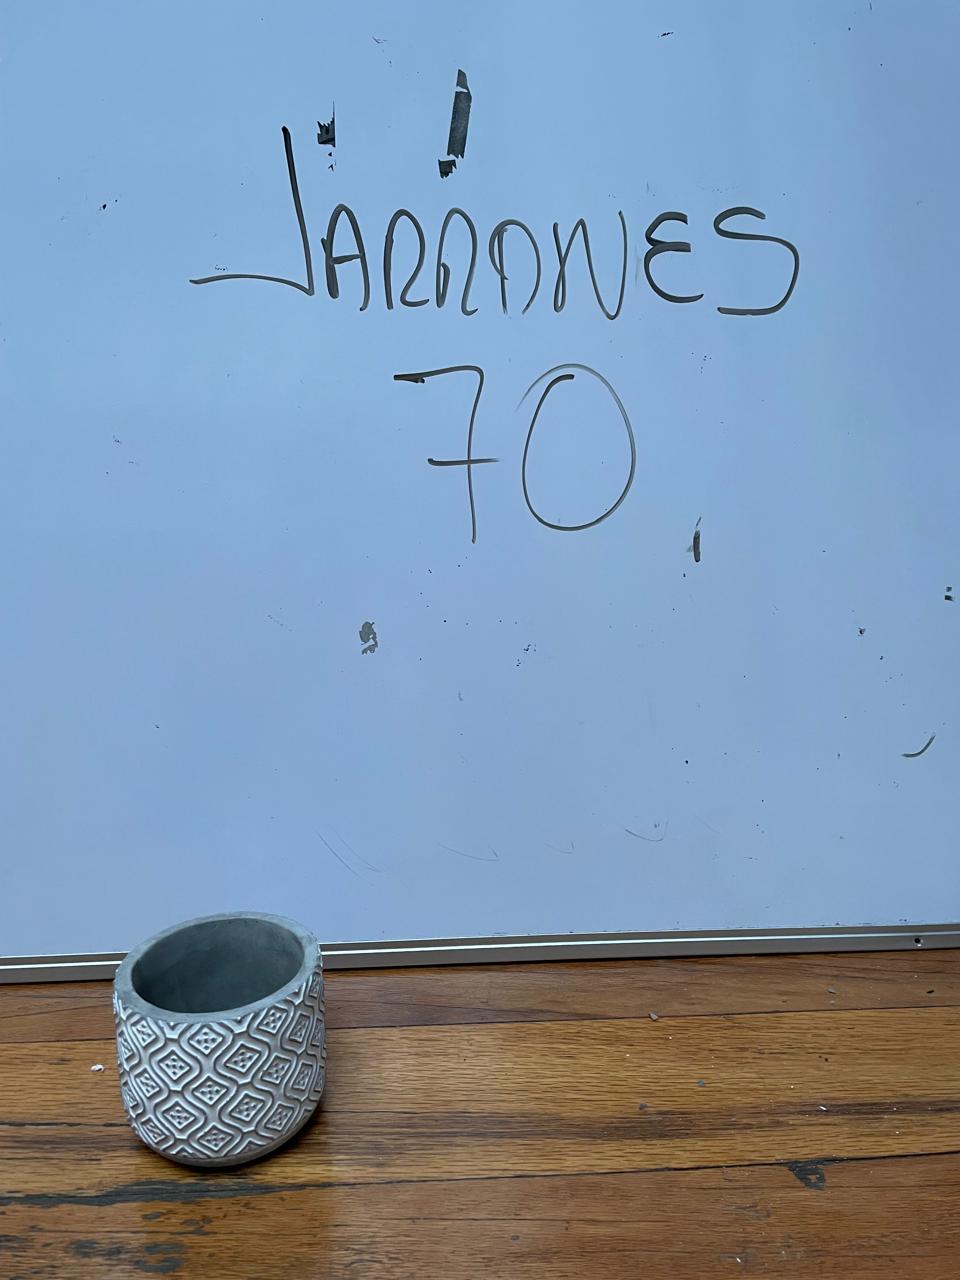 JARRONES
70